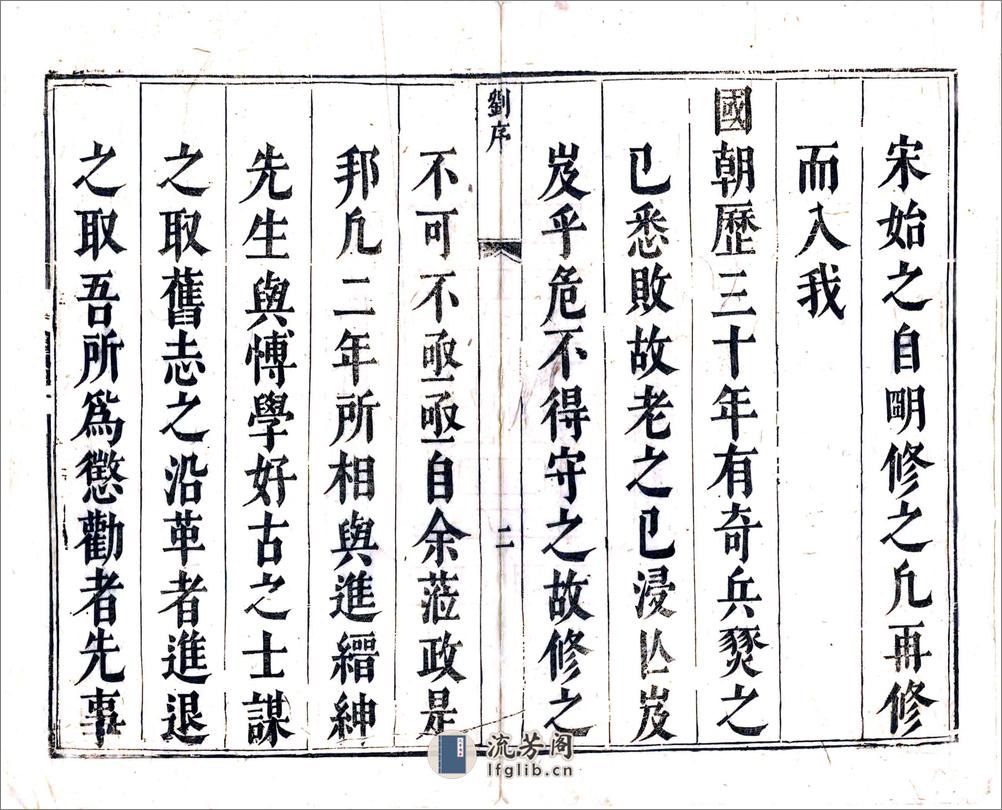 宋始之自明修之凡再修
而入我
國朝歷三十年有奇兵燹之
已悉敗故老之已浸亾岌
岌乎危不得守之故修之
劉序
二
不可不亟亟自余蒞政是
邦凡二年所相與進縉紳
先生與博學好古之士謀
之取舊志之沿革者進退
之取吾所爲懲勸者先事
流芳阁
lfglib.cn